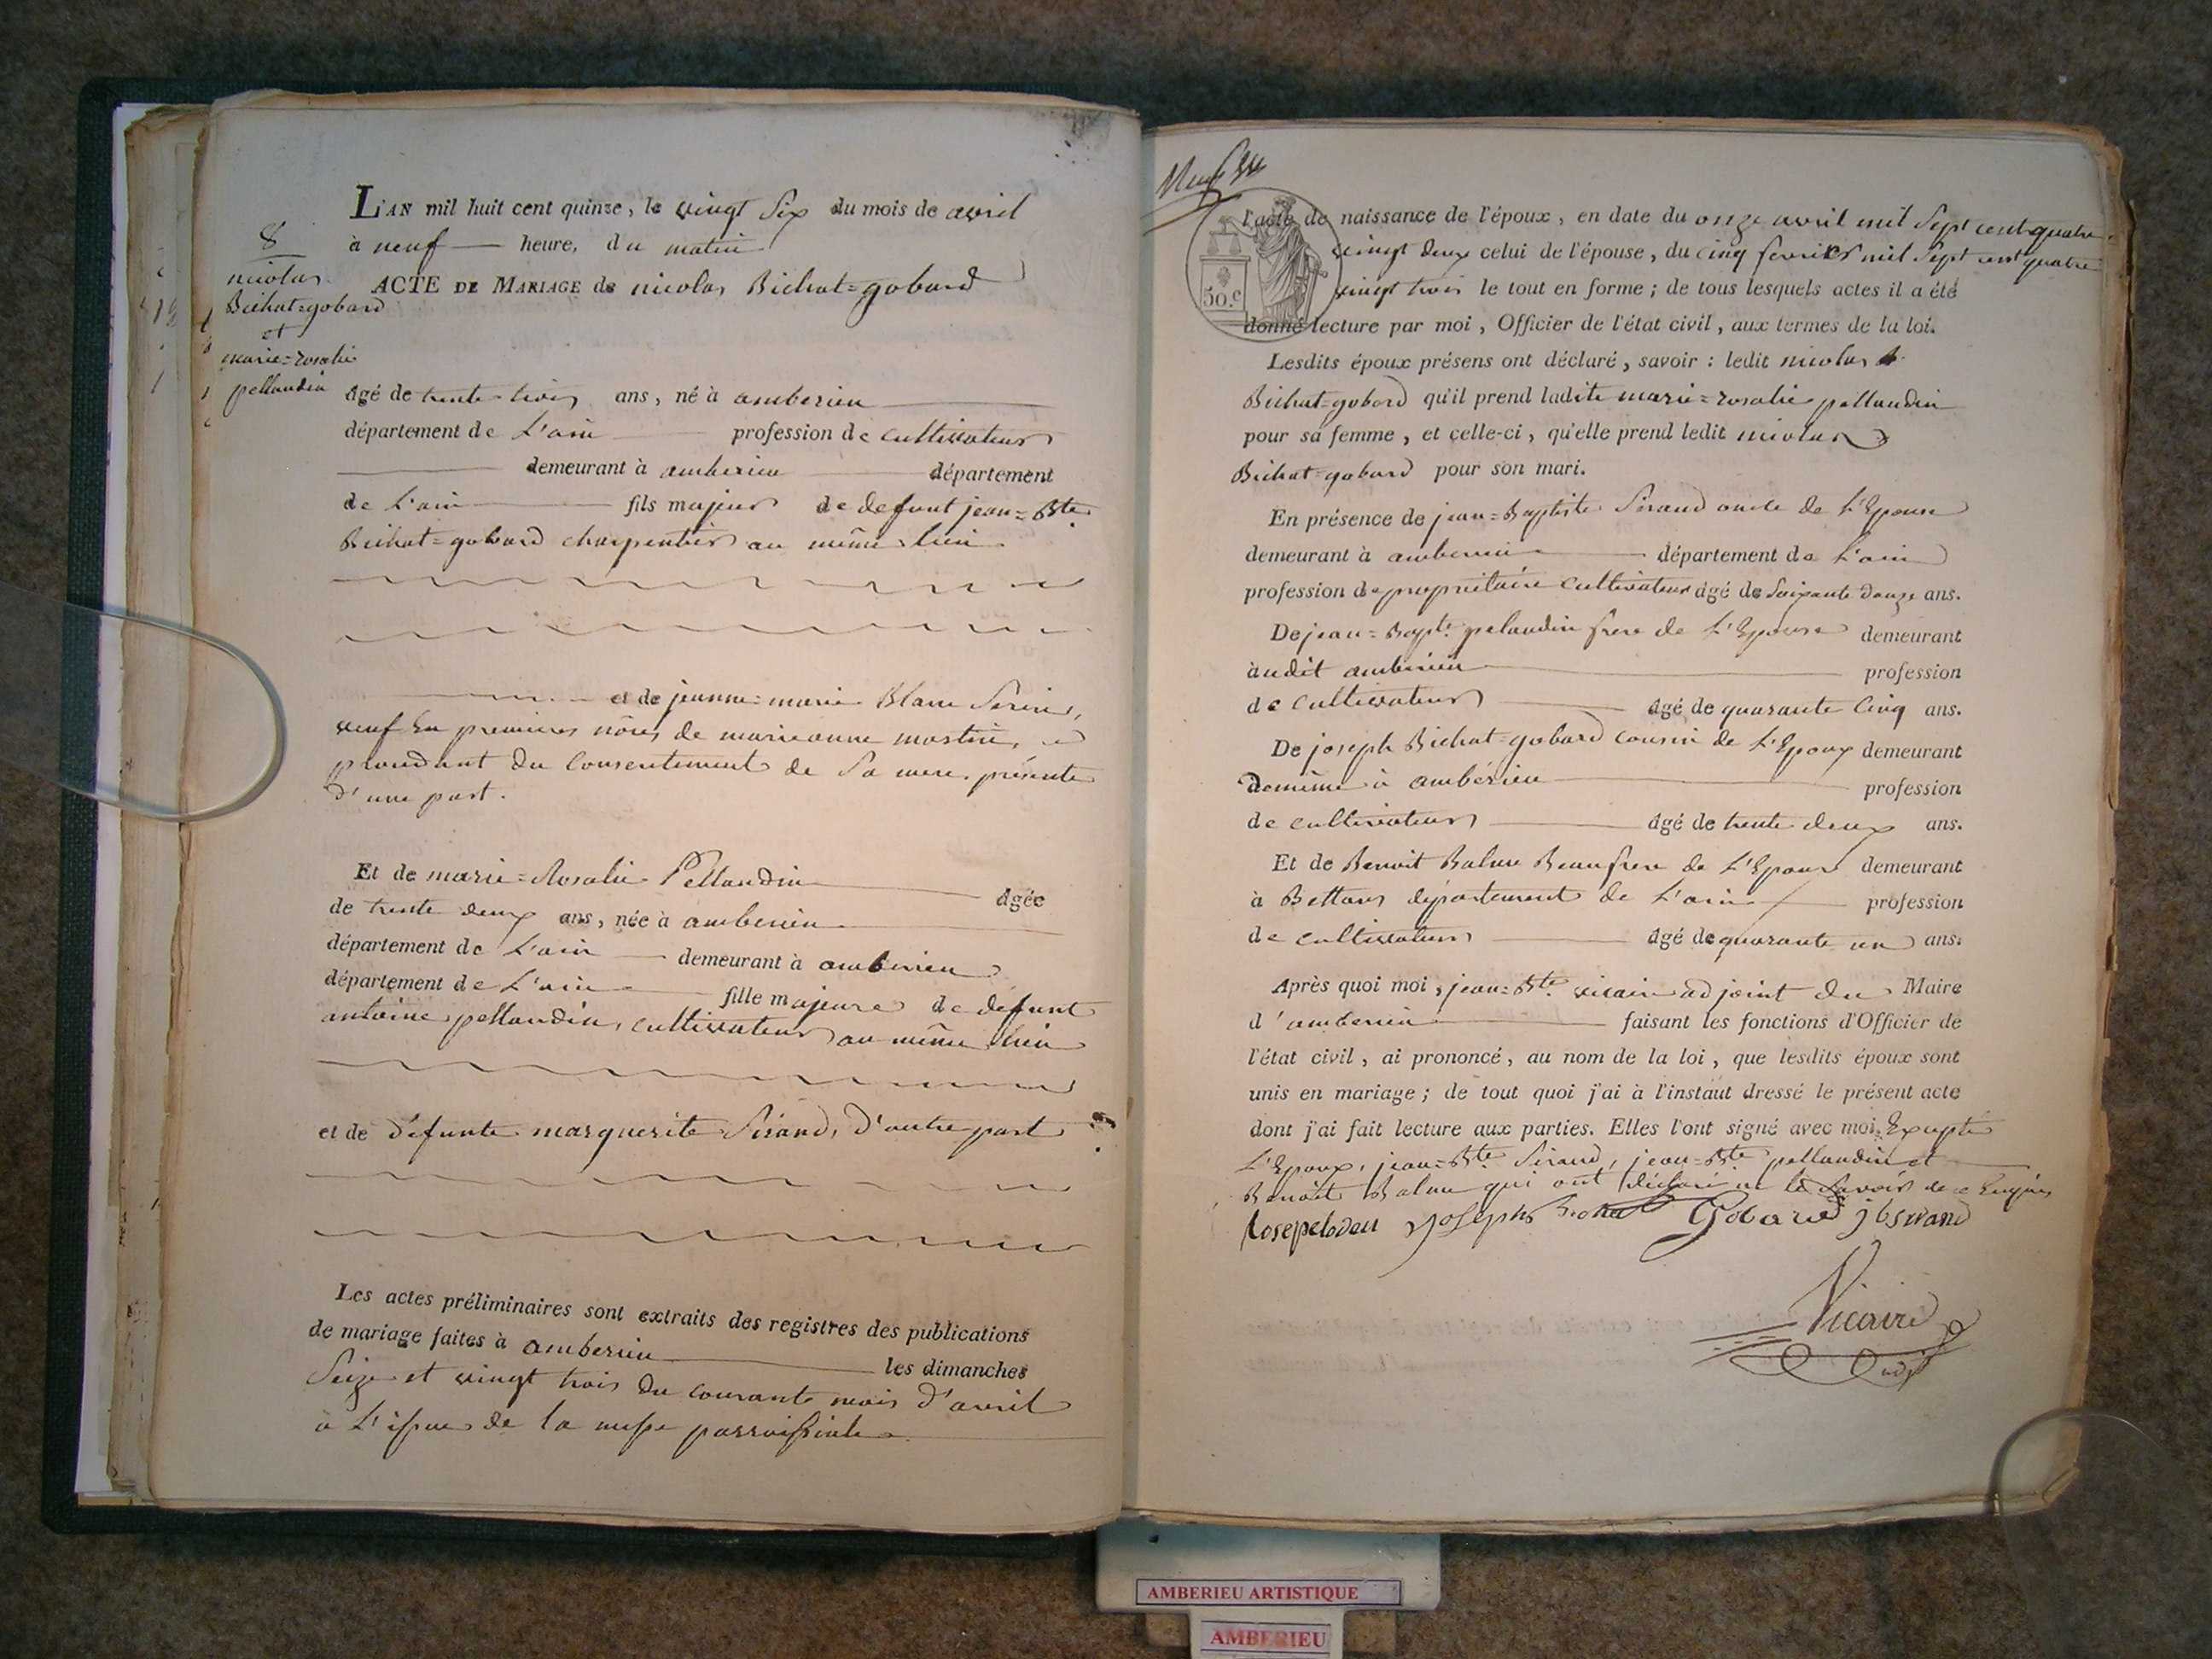 8
nicolas
Bichat=gobard
et
marie=rosalie
pellaudin
L'AN mil huit cent quinze, le vingt Six du mois de avril
à neuf heure, du matin
ACTE DE MARIAGE de nicolas Bichat=gobard
âgé de trente trois ans, né à amberieu
département de L'ain profession de cultivateur
demeurant à amberieu département
de L'ain fils majeur de defunt jean=Bte
Bichat=gobard charpentier au même lieu
et de jeanne=marie Blanc Serin,
veuf En premieres nôces de marieanne mostier,
du Consentement de Sa mere présente
d'une part.
Et de marie=Rosalie Pellaudin âgée
de trente deux ans, née à amberieu
département de L'ain demeurant à amberieu
département de L'ain fille majeure de défunt
antoine pellaudin, cultivateur au même lieu
et de défunte marguerite Sirand, d'autre part
Les actes préliminaires sont extraits des registres des publications
de mariage faites à amberieu les dimanches
Seize et vingt trois du courant mois d'avril
à L'issue de la messe parroissiale
50.c
l'acte de naissance de l'époux, en date du onze avril mil Sept cent quatre
vingt deux celui de l'épouse, du cinq fevrier mil Sept cent quatre
vingt trois le tout en forme; de tous lesquels actes il a été
donné lecture par moi, Officier de l'état civil, aux termes de la loi.
Lesdits époux présens ont déclaré, savoir : ledit nicolas
Bichat=gobard qu'il prend ladite marie=rosalie pellaudin
pour sa femme, et celle-ci, qu'elle prend ledit nicolas
Bichat=gobard pour son mari.
En présence de jean=Baptiste Sirand oncle de L'Epouse
demeurant à amberieu département de L'ain
profession de propriétaire Cultivateur âgé de Soixante douze ans.
De jean=Bapte pelaudin frere de L'Epouse demeurant
audit amberieu profession
de Cultivateur âgé de quarante Cinq ans.
De joseph Bichat=gobard cousin de L'Epoux demeurant
demême à ambérieu profession
de cultivateur âgé de trente deux ans.
Et de Benoit Balme Beaufrere de L'Epoux demeurant
à Bettans département de L'ain profession
de cultivateur âgé de quarante un ans.
Après quoi moi, jean=Bte vicaire adjoint du Maire
d'amberieu faisant les fonctions d'Officier de
l'état civil, ai prononcé, au nom de la loi, que lesdits époux sont
unis en mariage; de tout quoi j'ai à l'instant dressé le présent acte
dont j'ai fait lecture aux parties. Elles l'ont signé avec moi, Excepté
L'Epoux, jean=Bte Sirand, jean=Bte pellaudin et
Benoît Balme qui ont déclaré ne le Savoir de ce Enquis
Rosepelodin Joseph Bichat Gobard jbsirand
Vicaire
adjt
AMBERIEU ARTISTIQUE
AMBERIEU